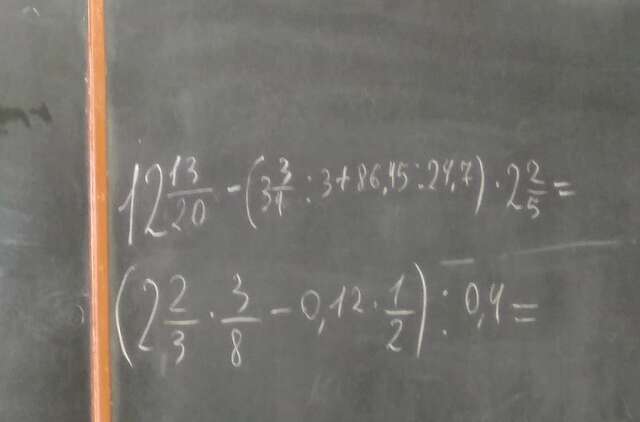 12 13/20 - (3 3/4 : 3 + 86,45 : 24,7) · 2 2/5 =
(2 2/3 · 3/8 - 0,12 · 1/2) : 0,4 =